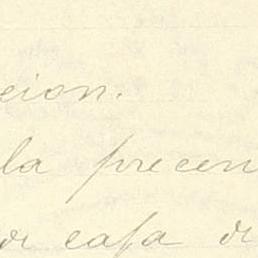 eion.
la precen
or cafa d